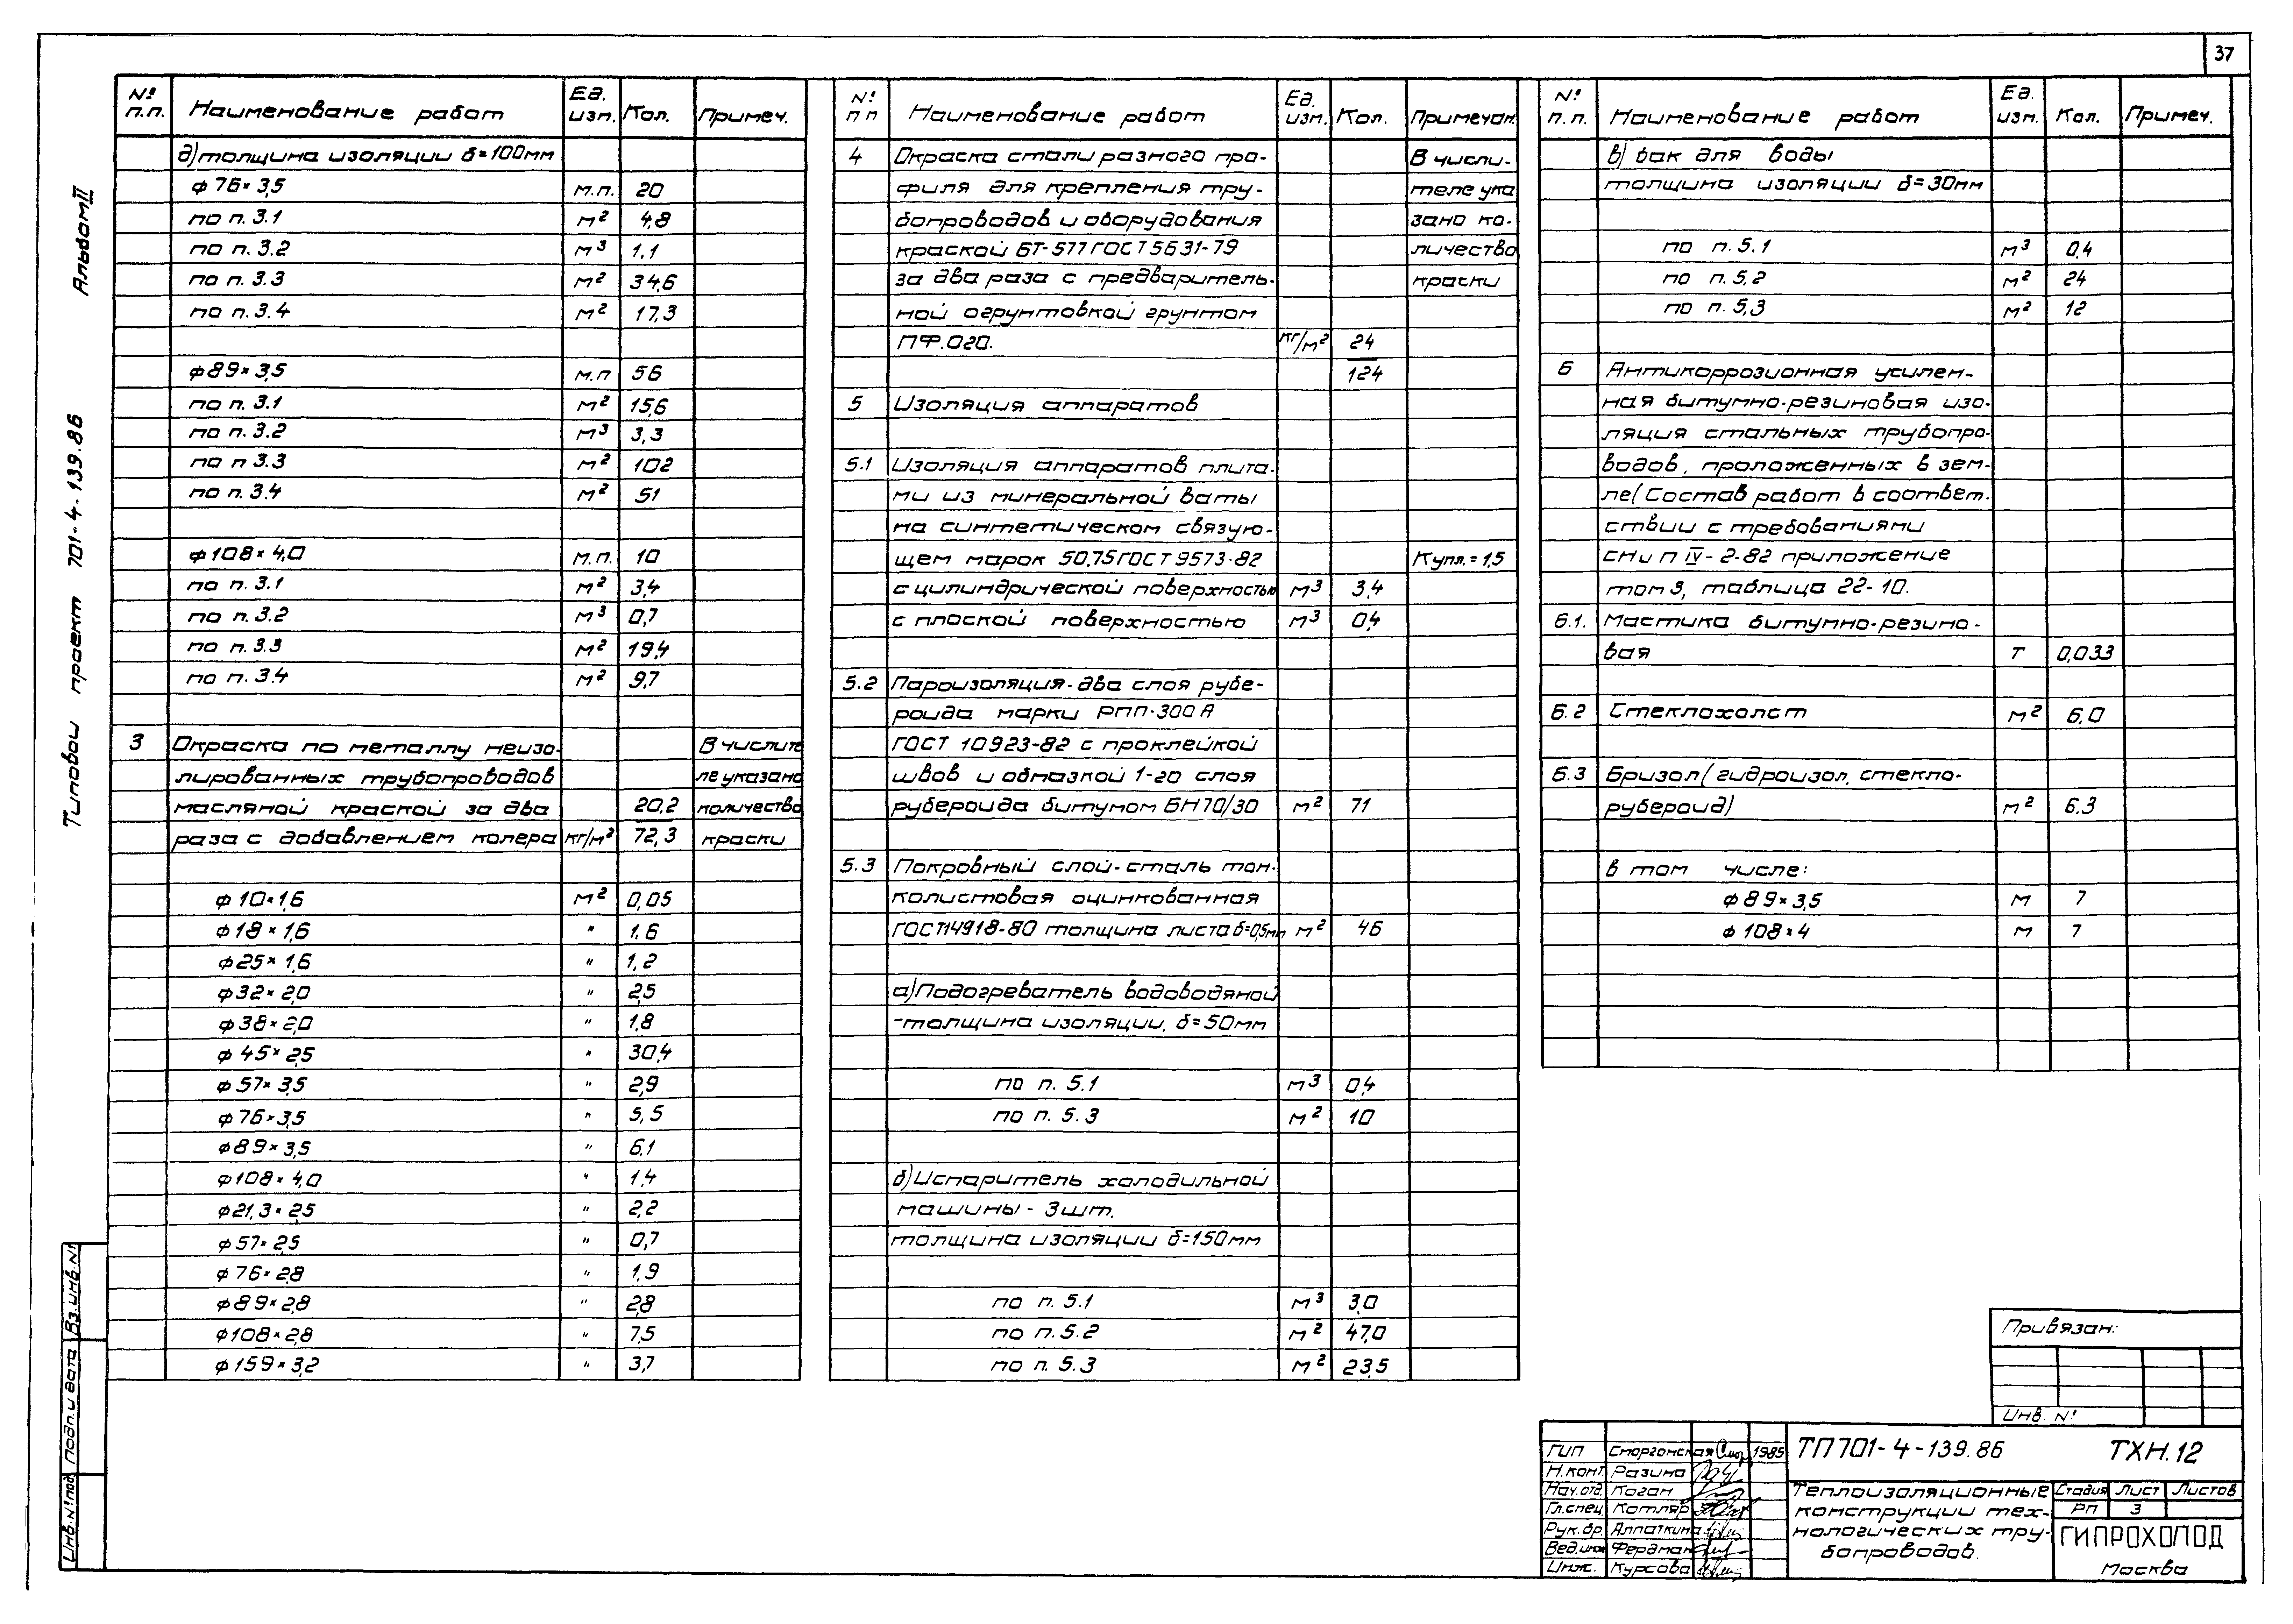 37
Альбом II
Типовой проект 701-4-139.86
№ п.п. Наименование работ Ед. изм. Кол. Примеч.
д) толщина изоляции δ=100мм
ф76×3,5 м.п. 20
по п. 3.1 м² 4,8
по п. 3.2 м³ 1,1
по п. 3.3 м² 34,6
по п. 3.4 м² 17,3
ф89×3,5 м.п 56
по п. 3.1 м² 15,6
по п. 3.2 м³ 3,3
по п 3.3 м² 102
по п. 3.4 м² 51
ф108×4,0 м.п. 10
по п. 3.1 м² 3,4
по п. 3.2 м³ 0,7
по п. 3.3 м² 19,4
по п. 3.4 м² 9,7
3 Окраска по металлу неизо- В числите
лированных трубопроводов ле указано
масляной краской за два 20,2 количество
раза с добавлением колера кг/м² 72,3 краски
ф10×1,6 м² 0,05
ф18×1,6 " 1,6
ф25×1,6 " 1,2
ф32×2,0 " 2,5
ф38×2,0 " 1,8
ф45×2,5 " 30,4
ф57×3,5 " 2,9
ф76×3,5 " 5,5
ф89×3,5 " 6,1
ф108×4,0 " 1,4
ф21,3×2,5 " 2,2
ф57×2,5 " 0,7
ф76×2,8 " 1,9
ф89×2,8 " 2,8
ф108×2,8 " 7,5
ф159×3,2 " 3,7
№ п п Наименование работ Ед. изм. Кол. Примечан.
4 Окраска стали разного про- В числи-
филя для крепления тру- теле ука
бопроводов и оборудования зано ко-
краской БТ-577 ГОСТ 5631-79 личество
за два раза с предваритель- краски
ной огрунтовкой грунтом
ПФ.020. кг/м² 24
124
5 Изоляция аппаратов
5.1 Изоляция аппаратов плита-
ми из минеральной ваты
на синтетическом связую-
щем марок 50,75 ГОСТ 9573-82 Купл.=1,5
с цилиндрической поверхностью м³ 3,4
с плоской поверхностью м³ 0,4
5.2 Пароизоляция-два слоя рубе-
роида марки РПП-300А
ГОСТ 10923-82 с проклейкой
швов и обмазкой 1-го слоя
рубероида битумом БН 70/30 м² 71
5.3 Покровный слой-сталь тон-
колистовая оцинкованная
ГОСТ14918-80 толщина листа δ=0,5мм м² 46
а) Подогреватель водоводяной
-толщина изоляции, δ=50мм
по п. 5.1 м³ 0,4
по п. 5.3 м² 10
б) Испаритель холодильной
машины - 3шт.
толщина изоляции δ=150мм
по п. 5.1 м³ 3,0
по п. 5.2 м² 47,0
по п. 5.3 м² 23,5
№ п.п. Наименование работ Ед. изм. Кол. Примеч.
в) бак для воды
толщина изоляции δ=30мм
по п. 5.1 м³ 0,4
по п. 5,2 м² 24
по п. 5,3 м² 12
6 Антикоррозионная усилен-
ная битумно-резиновая изо-
ляция стальных трубопро-
водов, проложенных в зем-
ле (Состав работ в соответ-
ствии с требованиями
СНиП IV-2-82 приложение
том 3, таблица 22-10.
6.1. Мастика битумно-резино-
вая т 0,033
6.2 Стеклохолст м² 6,0
6.3 Бризол (гидроизол, стекло-
рубероид) м² 6.3
в том числе:
ф89×3,5 м 7
ф108×4 м 7
Привязан:
Инв. №
ГИП Сморгонская 1985
Н.конт. Разина
Нач.отд. Коган
Гл.спец. Котляр
Рук.бр. Алпаткина
Вед.инж Фердман
Инж. Курсова
ТП701-4-139.86 ТХН.12
Теплоизоляционные
конструкции тех-
нологических тру-
бопроводов.
Стадия Лист Листов
РП 3
ГИПРОХОЛОД
Москва
Инв.№ под Подп.и дата Вз.инв.№